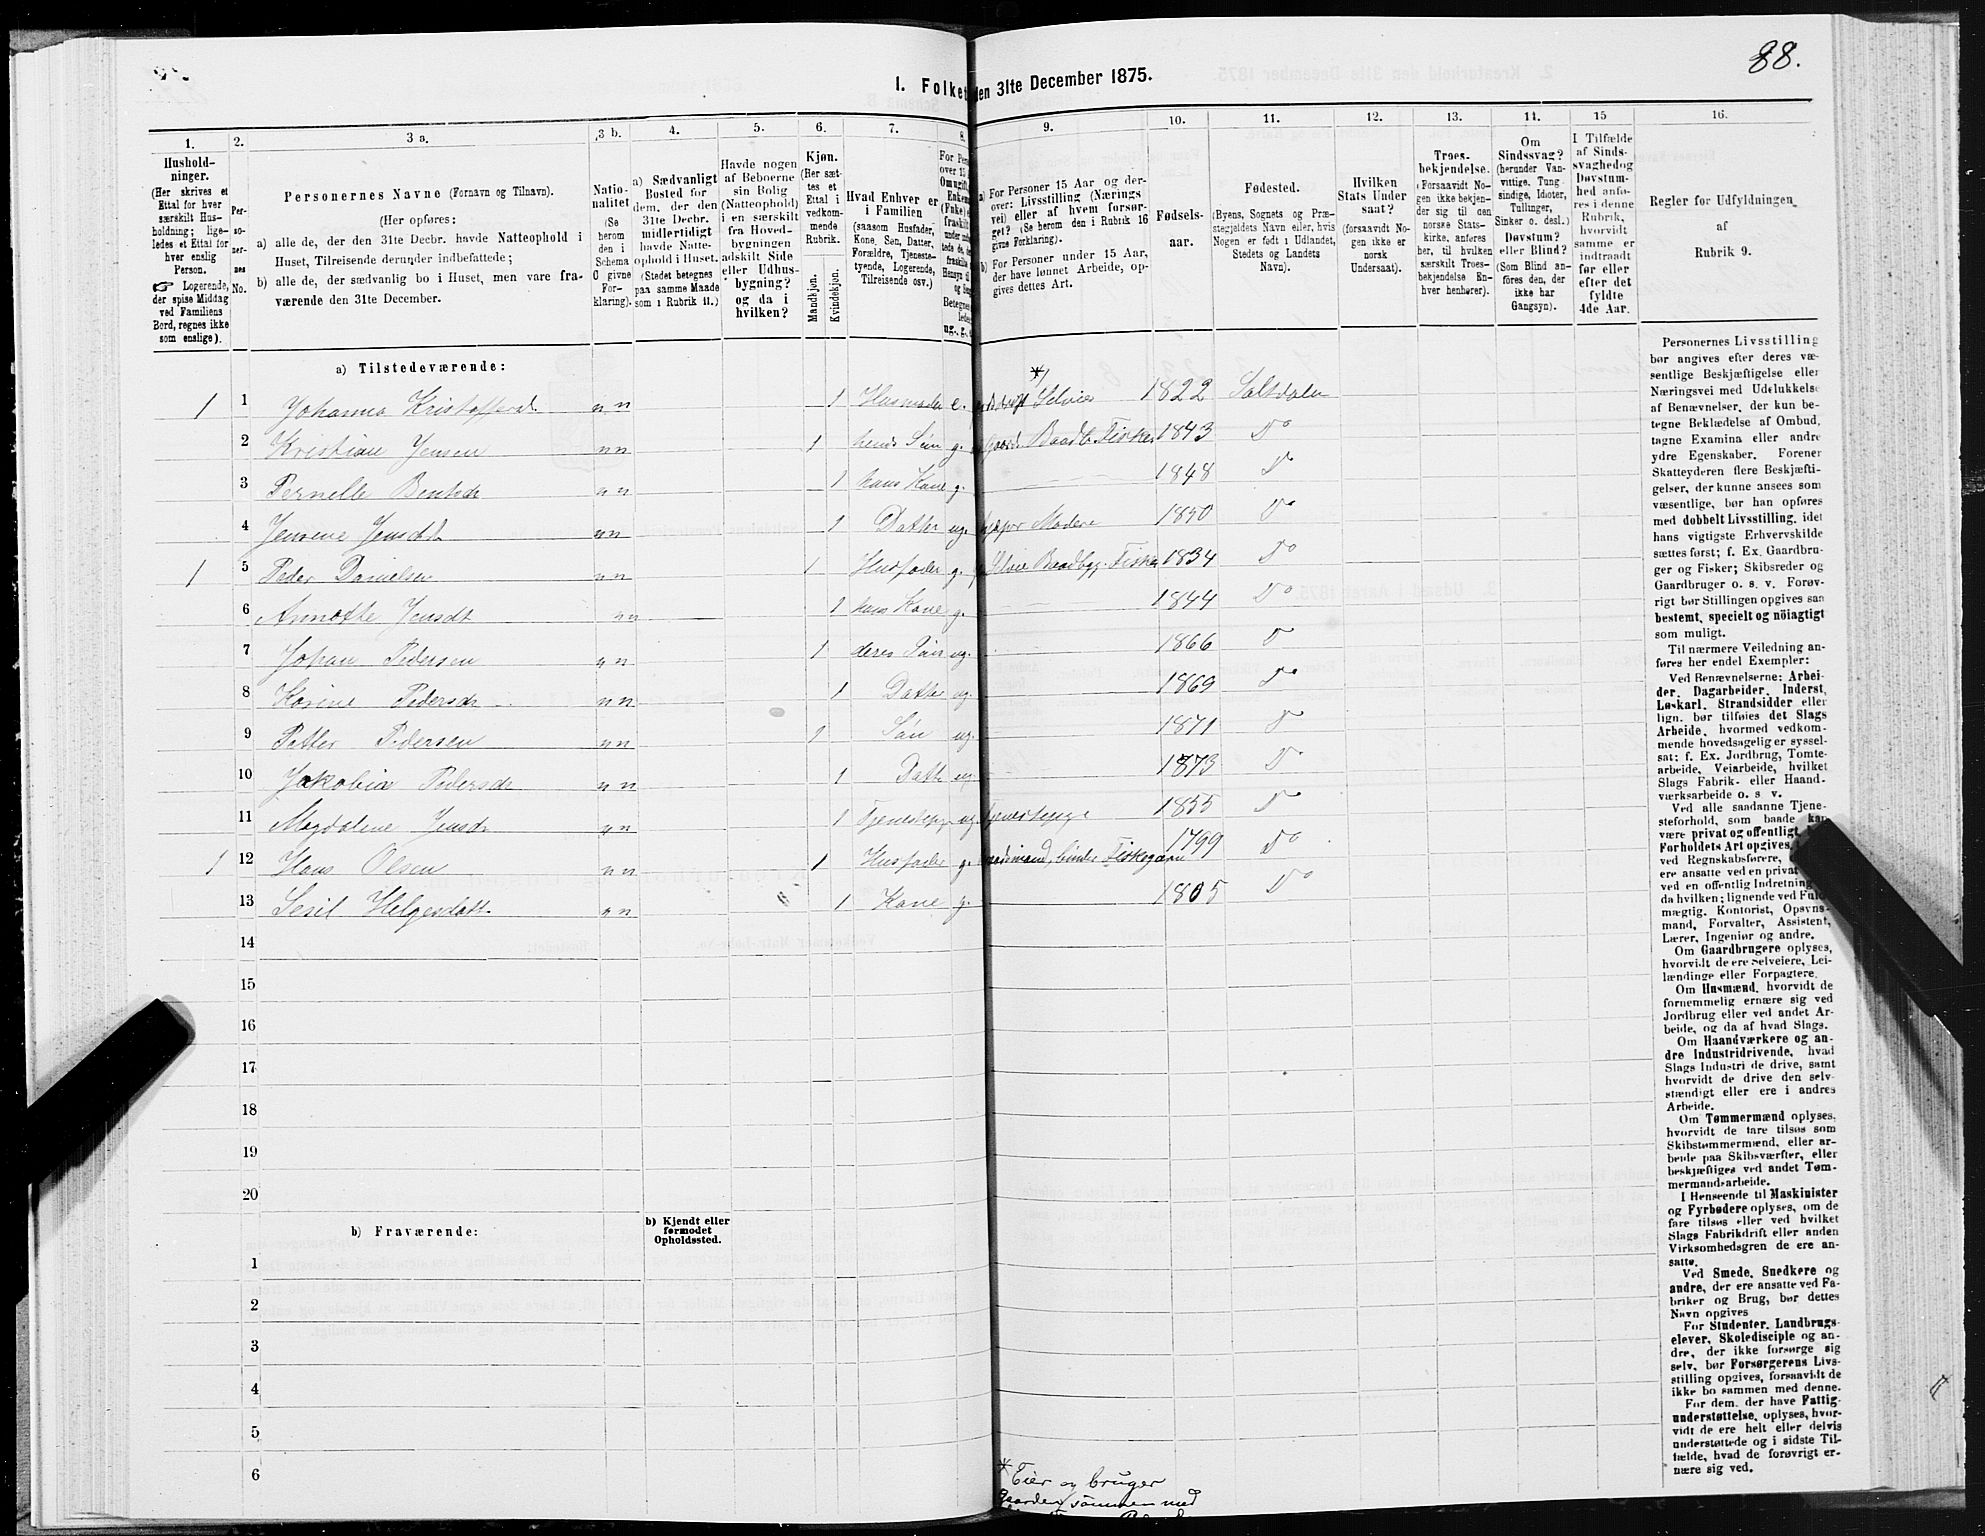 88.
I. Folket
den 31te December 1875.
1. 2. 3 a. 3 b. 4. 5. 6. 7. 8. 9. 10. 11. 12. 13. 14. 15 16.
Hushold-
ninger.
(Her skrives et
Ettal for hver
særskilt Hus-
holdning; lige-
ledes et Ettal for
hver enslig
Person.
☞ Logerende,
der spise Middag
ved Familiens
Bord, regnes ikke
som enslige).
Per-
so-
ner-
nes
No.
Personernes Navne (Fornavn og Tilnavn).
(Her opføres:
a) alle de, der den 31te Decbr. havde Natteophold i
Huset, Tilreisende derunder indbefattede;
b) alle de, der sædvanlig bo i Huset, men vare fra-
værende den 31te December.
Natio-
nalitet
(Se
herom
den i
Schema
C givne
For-
klaring).
a) Sædvanligt
Bosted for
dem, der den
31te Decbr.
midlertidigt
havde Natte-
ophold i Huset.
(Stedet betegnes
paa samme Maade
som i Rubrik 11.)
Havde nogen
af Beboerne
sin Bolig
(Natteophold)
i en særskilt
fra Hoved-
bygningen
adskilt Side
eller Udhus-
bygning?
og da i
hvilken?
Kjøn.
(Her sæt-
tes et
Ettal i
vedkom-
mende
Rubrik.
Mandkjøn.
Kvindekjøn.
Hvad Enhver er
i Familien
(saasom Husfader,
Kone, Søn, Datter,
Forældre, Tjeneste-
tyende, Logerende,
Tilreisende osv.)
a) For Personer 15 Aar og der-
over: Livsstilling (Nærings-
vei) eller af hvem forsør-
get? (Se herom den i Rubrik 16
givne Forklaring).
b) For Personer under 15 Aar,
der have lønnet Arbeide, op-
gives dettes Art.
Fødsels-
aar.
Fødested.
(Byens, Sognets og Præ-
stegjeldets Navn eller, hvis
Nogen er født i Udlandet,
Stedets og Landets
Navn).
Hvilken
Stats Under
saat?
(forsaavidt No-
gen ikke er
norsk
Undersaat).
Troes-
bekjendelse.
(Forsaavidt No-
gen ikke bekjen-
der sig til den
norske Stats-
kirke, anføres
her, til hvilken
særskilt Troes-
bekjendelse En-
hver henhører).
Om
Sindssvag?
(herunder Van-
vittige, Tung-
sindige, Idioter,
Tullinger,
Sinker o. desl.)
Døvstum?
eller Blind?
(Som Blind an-
føres den, der
ikke har
Gangsyn).
I Tilfælde
af Sinds-
svaghedog
Døvstum-
hed anfø-
res i denne
Rubrik,
hvorvidt
samme er
indtraadt
før eller
efter det
fyldte
4de Aar.
Regler for Udfyldningen
af
Rubrik 9.
a) Tilstedeværende:
1 1 Johanna Kristoffersd. 1 Husmoder e. Selveier 1822 Saltdalen
2 Kristian Jensen 1 hends Søn g. Baadb. Fisker 1843 Do
3 Pernelle Bentsdr 1 hans Kone g. 1848 Do
4 Jensine Jensdt 1 Datter ug. Modere 1850 Do
1 5 Peder Danielsen 1 Husfader g. Baadbyg. Fisker 1834 Do
6 Annatte Jensdt 1 hans Kone g. 1844 Do
7 Johan Pedersen 1 deres Søn ug. 1866 Do
8 Karine Pedersdr 1 Datter ug. 1869 Do
9 Petter Pedersen 1 Søn ug. 1871 Do
10 Jakobia Pedersdr 1 Datter ug. 1873 Do
11 Magdalene Jensdr 1 Tjenestepige ug. 1855 Do
1 12 Hans Olsen 1 Husfader g. binder Fiskegarn 1799 Do
13 Sesil Helgesdatt. 1 Kone g. 1805 Do
14
15
16
17
18
19
20
b) Fraværende:
b) Kjendt eller
formodet
Opholdssted.
1
2
3
4
5
6
* Eier og bruger
Gaarden sammen med
Personernes Livsstilling
bør angives efter deres væ-
sentlige Beskjæftigelse eller
Næringsvei med Udelukkelse
af Benævnelser, der kun be-
tegne Beklædelse af Ombud,
tagne Examina eller andre
ydre Egenskaber. Forener
Skatteyderen flere Beskjæfti-
gelser, der kunne ansees som
væsentlige, bør han opføres
med dobbelt Livsstilling, idet
hans vigtigste Erhvervskilde
sættes først; f. Ex. Gaardbru-
ger og Fisker; Skibsreder og
Gaardbruger o. s. v. Forøv-
rigt bør Stillingen opgives saa
bestemt, specielt og nöiagtigt
som muligt.
Til nærmere Veiledning an-
føres her endel Exempler:
Ved Benævnelserne: Arbei-
der, Dagarbeider, Inderst,
Løskarl, Strandsidder eller
lign. bør tilføies det Slags
Arbeide, hvormed vedkom-
mende hovedsagelig er syssel-
sat; f. Ex. Jordbrug, Tomte-
arbeide, Veiarbeide, hvilket
Slags Fabrik- eller Haand-
værksarbeide o. s. v.
Ved alle saadanne Tjene-
steforhold, som baade kan
være privat og offentligt,
Forholdets Art opgives,
ved Regnskabsførere,
ere ansatte ved en privat
ved en offentlig Indretning
da hvilken; lignende ved Fuld-
mægtig, Kontorist, Opsyns-
mand, Forvalter, Assistent,
Lærer, Ingeniør og andre.
Om Gaardbrugere oplyses,
hvorvidt de ere Selveiere, Lei-
lændinge eller Forpagtere.
Om Husmænd, hvorvidt de
fornemmelig ernære sig ved
Jordbrug eller ved andet Ar-
beide, og da af hvad Slags.
Om Haandværkere og an-
dre Industridrivende, hvad
Slags Industri de drive, samt
hvorvidt de drive den selv-
stændigt eller ere i andres
Arbeide.
Om Tømmermænd oplyses,
hvorvidt de fare tilsøs som
Skibstømmermænd, eller ar-
beide paa Skibsværfter, eller
beskjæftiges ved andet Tøm-
mermandsarbeide.
I Henseende til Maskinister
og Fyrbødere oplyses, om de
fare tilsøs eller ved hvilket
Slags Fabrikdrift eller anden
Virksomhedsgren de ere an-
satte.
Ved Smede, Snedkere og
andre, der ere ansatte ved Fa-
briker og Brug, bør dettes
Navn opgives
For Studenter, Landbrugs-
elever, Skoledisciple og an-
dre, der ikke forsørge sig
selv, bør Forsørgerens Livs-
stilling opgives, forsaavidt de
ikke bo sammen med denne.
For dem, der have Fattig-
understøttelse, oplyses, hvor-
vidt de ere helt eller delvis
understøttede og i sidste Til-
fælde, hvad de forøvrigt er-
nære sig ved.